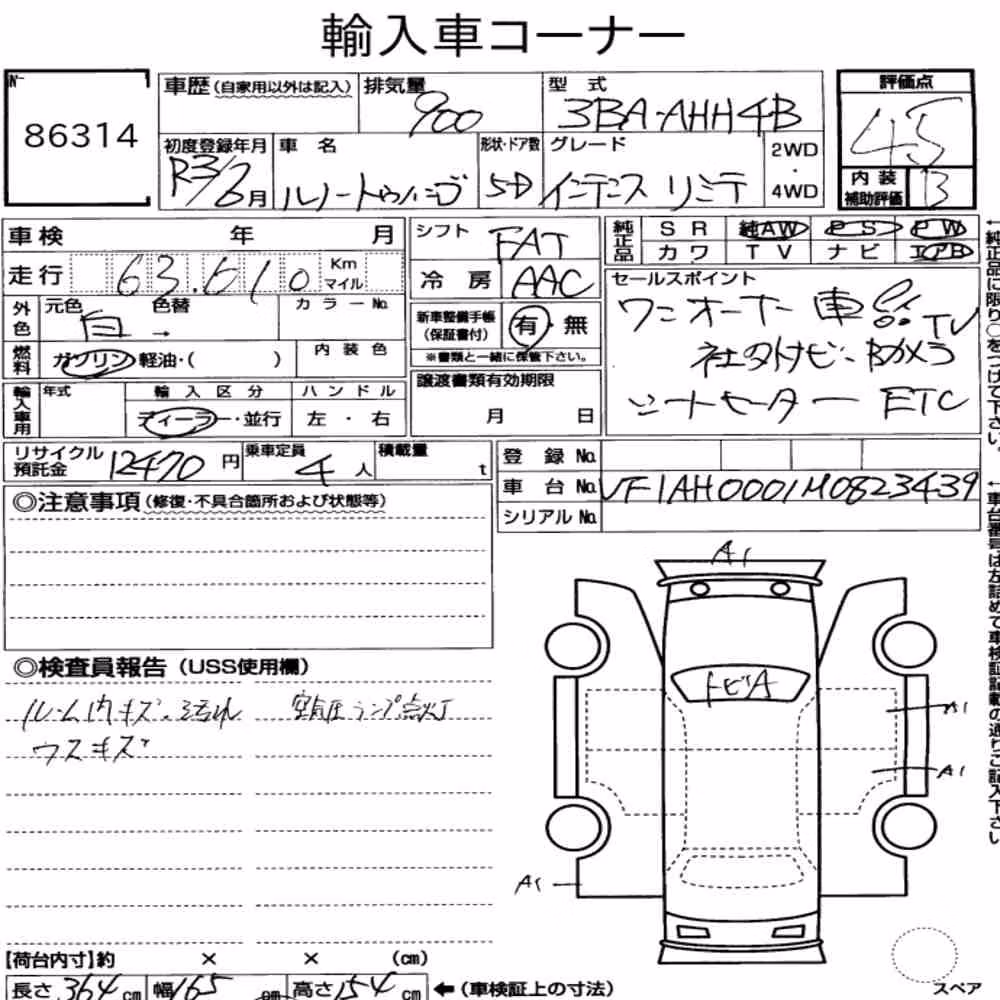 輸入車コーナー
No
86314
車歴(自家用以外は記入) 排気量 900 型式 3BA-AHH4B
評価点 4.5
初度登録年月 R3/6月 車名 ルノートゥインゴ 形状・ドア数 5D グレード インテンス リミテ 2WD・4WD
内装補助評価 B
車検 年 月
シフト FAT
純正品 SR 純AW PS PW
カワ TV ナビ エアB
走行 63,610 Km マイル
冷房 AAC
セールスポイント
ワンオーナー車 TV
社外ナビ・Bカメラ
シートヒーター ETC
外色 元色 白 → 色替 カラーNo.
新車整備手帳(保証書付) 有・無
※書類と一緒に保管下さい。
燃料 ガソリン 軽油・( ) 内装色
譲渡書類有効期限
月 日
輸入車用 年式 輸入区分 ハンドル
ディーラー・並行 左・右
リサイクル預託金 12470円 乗車定員 4人 積載量 t
登録No.
車台No. VF1AH0001M0823439
シリアルNo.
◎注意事項(修復・不具合箇所および状態等)
◎検査員報告(USS使用欄)
ルーム内キズ、汚れ 空気圧ランプ点灯
ウスキズ
A1
トビA
A1
A1
A1
【荷台内寸】約 × × (cm)
長さ 364 cm 幅 165 cm 高さ 154 cm ←(車検証上の寸法)
スペア
←純正品に限り○をつけて下さい。
←車台番号は左詰めで車検証記載の通りご記入下さい